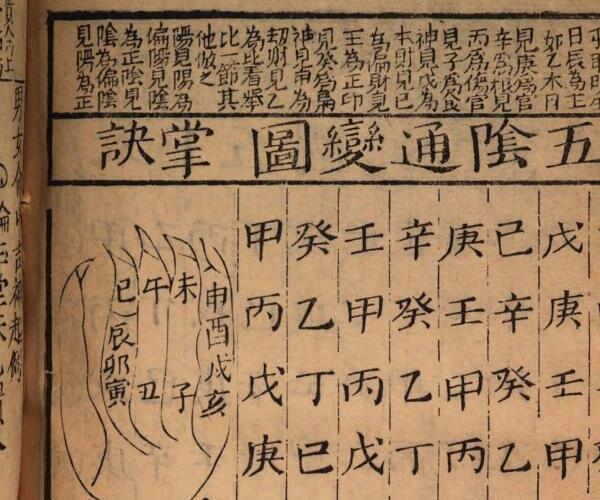 日辰為主
如乙木日
見庚為官
辛為煞見
丙為傷官
見子為食
神見戊為
本財見己
為偏財見
王為正印
見癸為
神見為
劫財見乙
為比肩舉
比一節其
他倣之
陽見陽為
偏陽見陰
為正陰見
陰為偏陰
見陽為正
五陰通變圖 掌訣
戊庚壬甲
己辛癸乙
庚壬甲丙
辛癸乙丁
壬甲丙戊
癸乙丁己
甲丙戊庚
申酉戊亥
未子
午丑
巳辰卯寅
男女